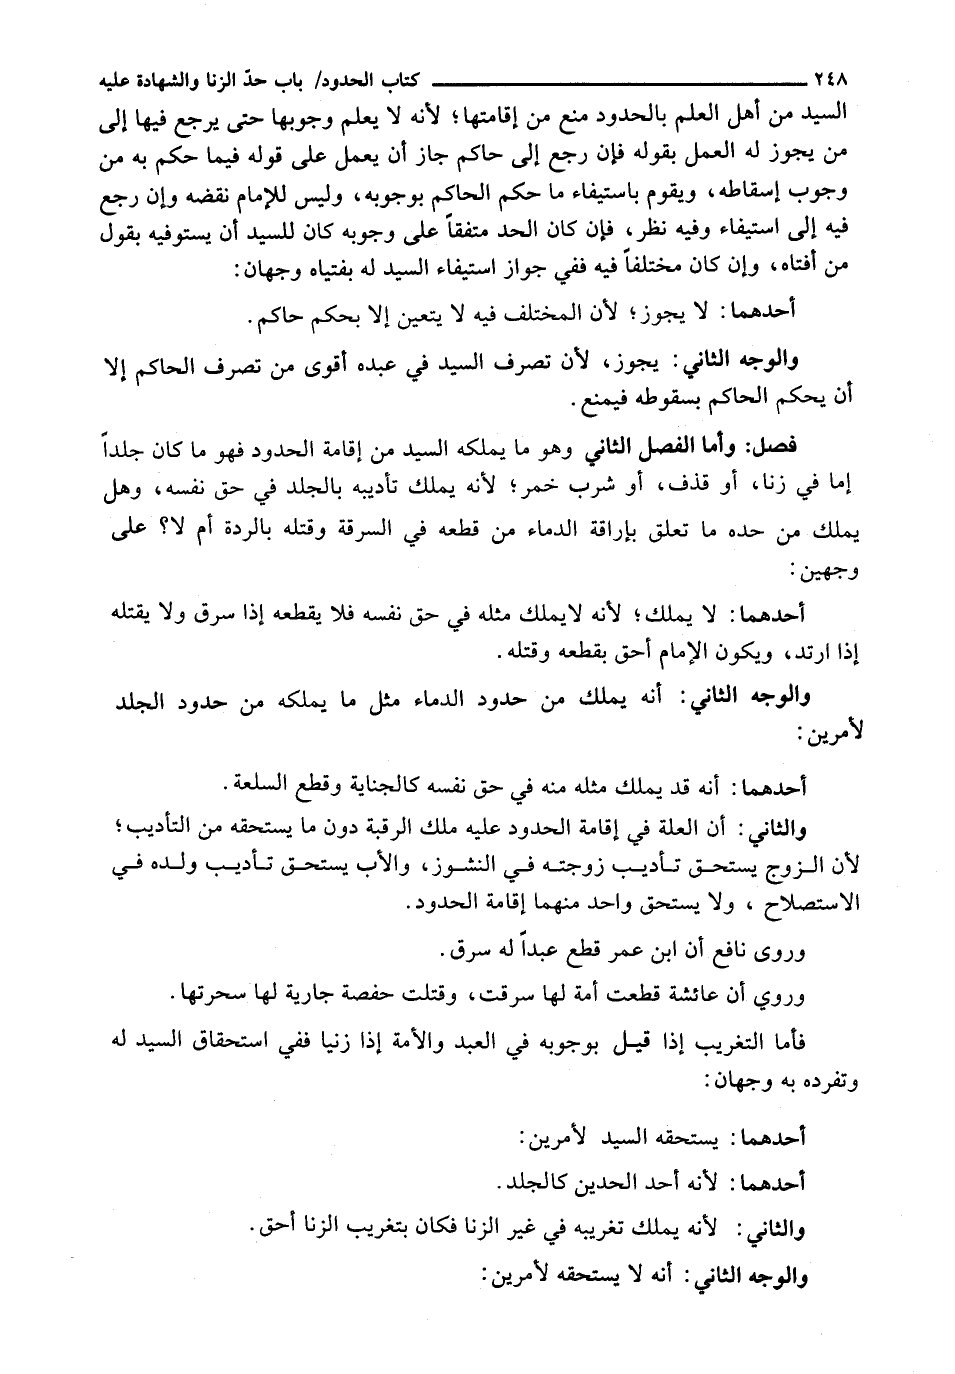 ٢٤٨ كتاب الحدود/ باب حدّ الزنا والشهادة عليه
السيد من أهل العلم بالحدود منع من إقامتها؛ لأنه لا يعلم وجوبها حتى يرجع فيها إلى
من يجوز له العمل بقوله فإن رجع إلى حاكم جاز أن يعمل على قوله فيما حكم به من
وجوب إسقاطه، ويقوم باستيفاء ما حكم الحاكم بوجوبه، وليس للإمام نقضه وإن رجع
فيه إلى استيفاء وفيه نظر، فإن كان الحد متفقاً على وجوبه كان للسيد أن يستوفيه بقول
من أفتاه، وإن كان مختلفاً فيه ففي جواز استيفاء السيد له بفتياه وجهان:
أحدهما: لا يجوز؛ لأن المختلف فيه لا يتعين إلا بحكم حاكم.
والوجه الثاني: يجوز، لأن تصرف السيد في عبده أقوى من تصرف الحاكم إلا
أن يحكم الحاكم بسقوطه فيمنع.
فصل: وأما الفصل الثاني وهو ما يملكه السيد من إقامة الحدود فهو ما كان جلداً
إما في زنا، أو قذف، أو شرب خمر؛ لأنه يملك تأديبه بالجلد في حق نفسه، وهل
يملك من حده ما تعلق بإراقة الدماء من قطعه في السرقة وقتله بالردة أم لا؟ على
وجهين:
أحدهما: لا يملك؛ لأنه لايملك مثله في حق نفسه فلا يقطعه إذا سرق ولا يقتله
إذا ارتد، ويكون الإمام أحق بقطعه وقتله.
والوجه الثاني: أنه يملك من حدود الدماء مثل ما يملكه من حدود الجلد
لأمرين:
أحدهما: أنه قد يملك مثله منه في حق نفسه كالجناية وقطع السلعة.
والثاني: أن العلة في إقامة الحدود عليه ملك الرقبة دون ما يستحقه من التأديب؛
لأن الزوج يستحق تأديب زوجته في النشوز، والأب يستحق تأديب ولده في
الاستصلاح، ولا يستحق واحد منهما إقامة الحدود.
وروى نافع أن ابن عمر قطع عبداً له سرق.
وروي أن عائشة قطعت أمة لها سرقت، وقتلت حفصة جارية لها سحرتها.
فأما التغريب إذا قيل بوجوبه في العبد والأمة إذا زنيا ففي استحقاق السيد له
وتفرده به وجهان:
أحدهما: يستحقه السيد لأمرين:
أحدهما: لأنه أحد الحدين كالجلد.
والثاني: لأنه يملك تغريبه في غير الزنا فكان بتغريب الزنا أحق.
والوجه الثاني: أنه لا يستحقه لأمرين: